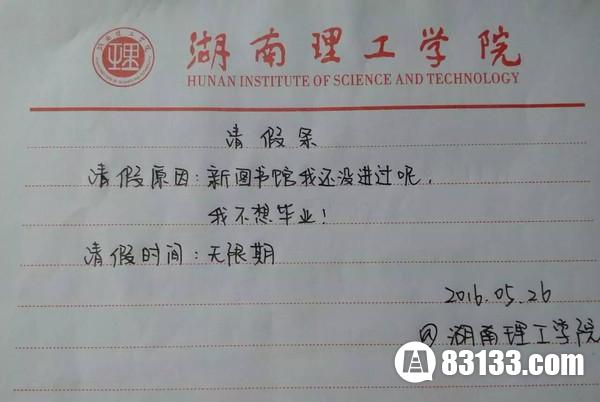 湖南理工学院
HUNAN INSTITUTE OF SCIENCE AND TECHNOLOGY
请假条
请假原因：新图书馆我还没进过呢，
我不想毕业！
请假时间：无限期
2016.05.26
@湖南理工学院
83133.com